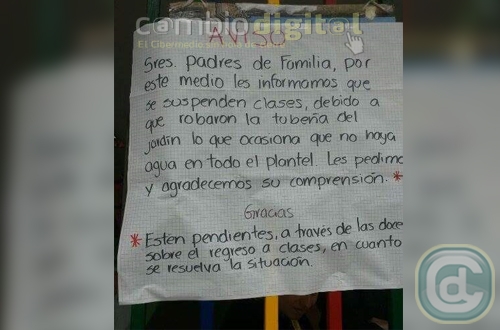 cambiodigital
El Cibermedio
AVISO
Sres. Padres de Familia, por
este medio les informamos que
se suspenden clases, debido a
que robaron la tubería del
jardín lo que ocasiona que no haya
agua en todo el plantel. Les pedimo
y agradecemos su comprensión. *
Gracias
* Estén pendientes, a través de las doce
sobre el regreso a clases, en cuanto
se resuelva la situación.